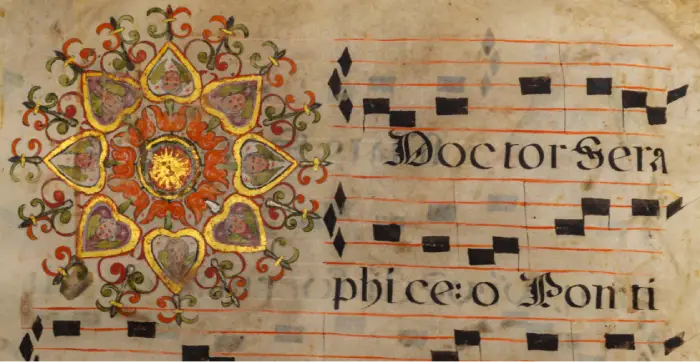 Doctor Sera
phice: o Ponti